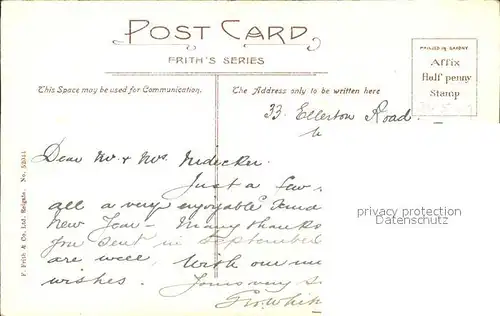 POST CARD
FRITH'S SERIES
PRINTED IN SAXONY
Affix
Half penny
Stamp
This Space may be used for Communication.
The Address only to be written here
33, Ellerton Road.
Dear Mr. & Mrs.
Just a few
all a very enjoyable
New Year - Many thanks
you sent in September
are well. With our
wishes. Yours very s
Geo. Whit
privacy protection
Datenschutz
F. Frith & Co. Ltd., Reigate. No.